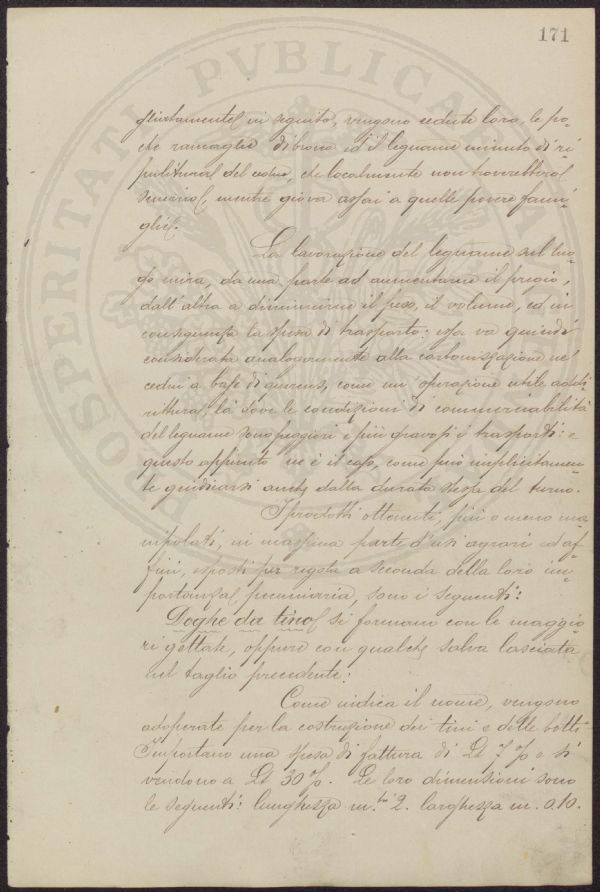 171
PROSPERITATI PVBLICAE
in seguito, vengono cedute loro, le po-
che ramaglie di brocca ed il legname minuto di ri-
pulitura del ceduo, che localmente non troverebbero
smercio, mentre giova assai a quelle povere fami-
glie.
La lavorazione del legname sul luo-
go mira, da una parte ad aumentarne il pregio,
dall'altra a diminuirne il peso, il volume, ed in
conseguenza la spesa di trasporto: essa va quindi
considerata analogamente alla carbonizzazione ne'
cedui a base di quercus, come un'operazione utile addi-
rittura, là dove le condizioni di commerciabilità
del legname sono peggiori e più gravosi i trasporti: e
questo appunto ne è il caso, come può implicitamen-
te giudicarsi anche dalla durata stessa del turno.
I prodotti ottenuti, più o meno ma-
nipolati, in massima parte d'usi agrari ed af-
fini, esposti per regola a seconda della loro im-
portanza pecuniaria, sono i seguenti:
Doghe da tino si formano con le maggio-
ri gettate, oppure con qualche salva lasciata
nel taglio precedente:
Come indica il nome, vengono
adoperate per la costruzione dei tini e delle botti
Importano una spesa di fattura di Lt 7 % e si
vendono a Lt 30 %. Le loro dimensioni sono
le seguenti: lunghezza m.tri 2. larghezza m. 0.10.